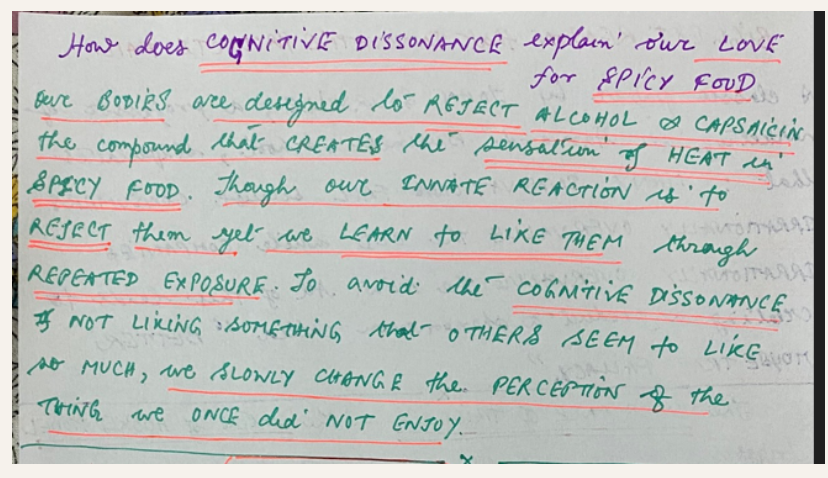 How does COGNITIVE DISSONANCE explain our LOVE
for SPICY FOOD
Our BODIES are designed to REJECT ALCOHOL & CAPSAICIN
the compound that CREATES the sensation of HEAT in
SPICY FOOD. Though our INNATE REACTION is to
REJECT them yet we LEARN to LIKE THEM through
REPEATED EXPOSURE. To avoid the COGNITIVE DISSONANCE
of NOT LIKING SOMETHING that OTHERS SEEM to LIKE
so MUCH, we SLOWLY CHANGE the PERCEPTION of the
THING we ONCE did NOT ENJOY.